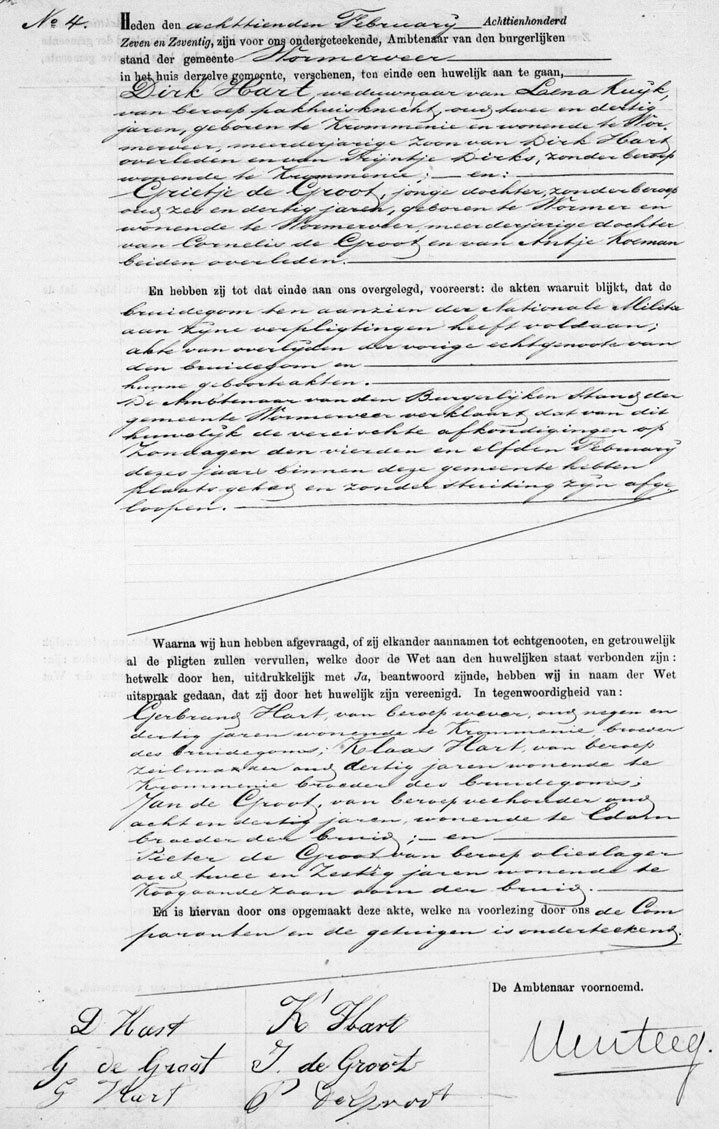 No 4.
Heden den achttienden February Achttienhonderd
Zeven en Zeventig, zijn voor ons ondergeteekende, Ambtenaar van den burgerlijken
stand der gemeente Wormerveer
in het huis derzelve gemeente, verschenen, ten einde een huwelijk aan te gaan,
Dirk Hart, weduwnaar van Leena Kuijk,
van beroep pakhuisknecht, oud twee en dertig
jaren, geboren te Krommenie en wonende te Wor-
merveer, meerderjarige zoon van Dirk Hart
overleden en van Trijntje Dirks, zonder beroep
wonende te Krommenie; — en:
Grietje de Groot, jonge dochter, zonder beroep
oud zes en dertig jaren, geboren te Wormer en
wonende te Wormerveer, meerderjarige dochter
van Cornelis de Groot en van Antje Koeman
beiden overleden.
En hebben zij tot dat einde aan ons overgelegd, vooreerst: de akten waaruit blijkt, dat de
bruidegom ten aanzien der Nationale Militie
aan zyne verpligtingen heeft voldaan;
akte van overlyden der vorige echtgenoote van
den bruidegom en
hunne geboorteakten.
De Ambtenaar van den Burgerlijken Stand der
gemeente Wormerveer verklaart dat van dit
huwelijk de vereischte afkondigingen op
Zondagen den vierden en elfden February
dezes jaars binnen deze gemeente hebben
plaats gehad en zonder stuiting zyn afge
loopen.
Waarna wij hun hebben afgevraagd, of zij elkander aannamen tot echtgenooten, en getrouwelijk
al de pligten zullen vervullen, welke door de Wet aan den huwelijken staat verbonden zijn:
hetwelk door hen, uitdrukkelijk met Ja, beantwoord zijnde, hebben wij in naam der Wet
uitspraak gedaan, dat zij door het huwelijk zijn vereenigd. In tegenwoordigheid van:
Gerbrand Hart, van beroep wever, oud negen en
dertig jaren wonende te Krommenie, broeder
des bruidegoms; Klaas Hart, van beroep
zeilmaker oud dertig jaren wonende te
Krommenie broeder des bruidegoms;
Jan de Groot, van beroep veehouder oud
acht en dertig jaren, wonende te Edam
broeder der bruid; — en
Pieter de Groot van beroep olieslager
oud twee en Zestig jaren wonende te
Koogaandezaan oom der bruid.
En is hiervan door ons opgemaakt deze akte, welke na voorlezing door ons de Com
paranten en de getuigen is onderteekend.
De Ambtenaar voornoemd.
D Hart K Hart
G de Groot J. de Groot
G Hart P de Groot